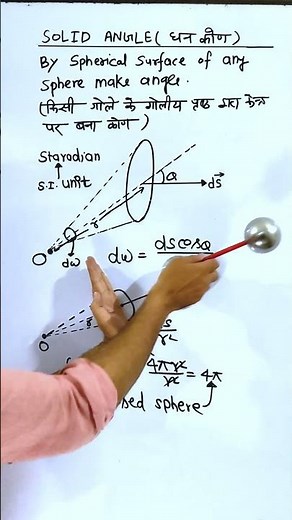 SOLID ANGLE (घन कोण)
By Spherical Surface of any
Sphere make angle.
(किसी गोले के गोलीय पृष्ठ द्वारा केन्द्र
पर बना कोण)
Staradian
S.I. unit
r
θ
ds
O
dω
dω = dscosθ
O
4πr² = 4π
r²
sphere